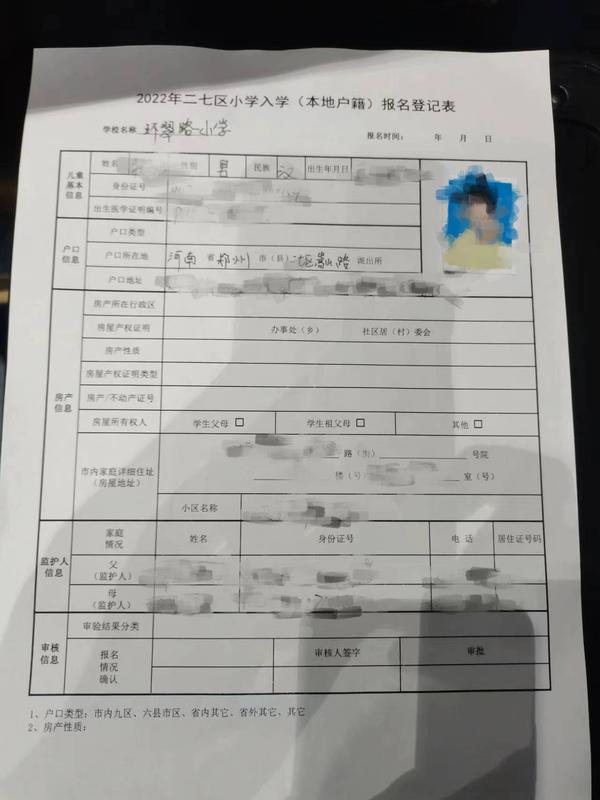 2022年二七区小学入学（本地户籍）报名登记表
学校名称 环翠路小学 报名时间： 年 月 日
儿童基本信息
姓名 性别 男 民族 汉 出生年月日
身份证号
出生医学证明编号
户口信息
户口类型
户口所在地 河南 省 郑州 市（县） 嵩山路 派出所
户口地址
房产信息
房产所在行政区
房屋产权证明 办事处（乡） 社区居（村）委会
房产性质
房屋产权证明类型
房产/不动产证号
房屋所有权人 学生父母 □ 学生祖父母 □ 其他 □
市内家庭详细住址（房屋地址） 路（街） 号院
楼（号） 室（号）
小区名称
监护人信息
家庭情况 姓名 身份证号 电 话 居住证号码
父（监护人）
母（监护人）
审核信息
审验结果分类
报名情况确认 审核人签字 审批
1、户口类型：市内九区、六县市区、省内其它、省外其它、其它
2、房产性质：